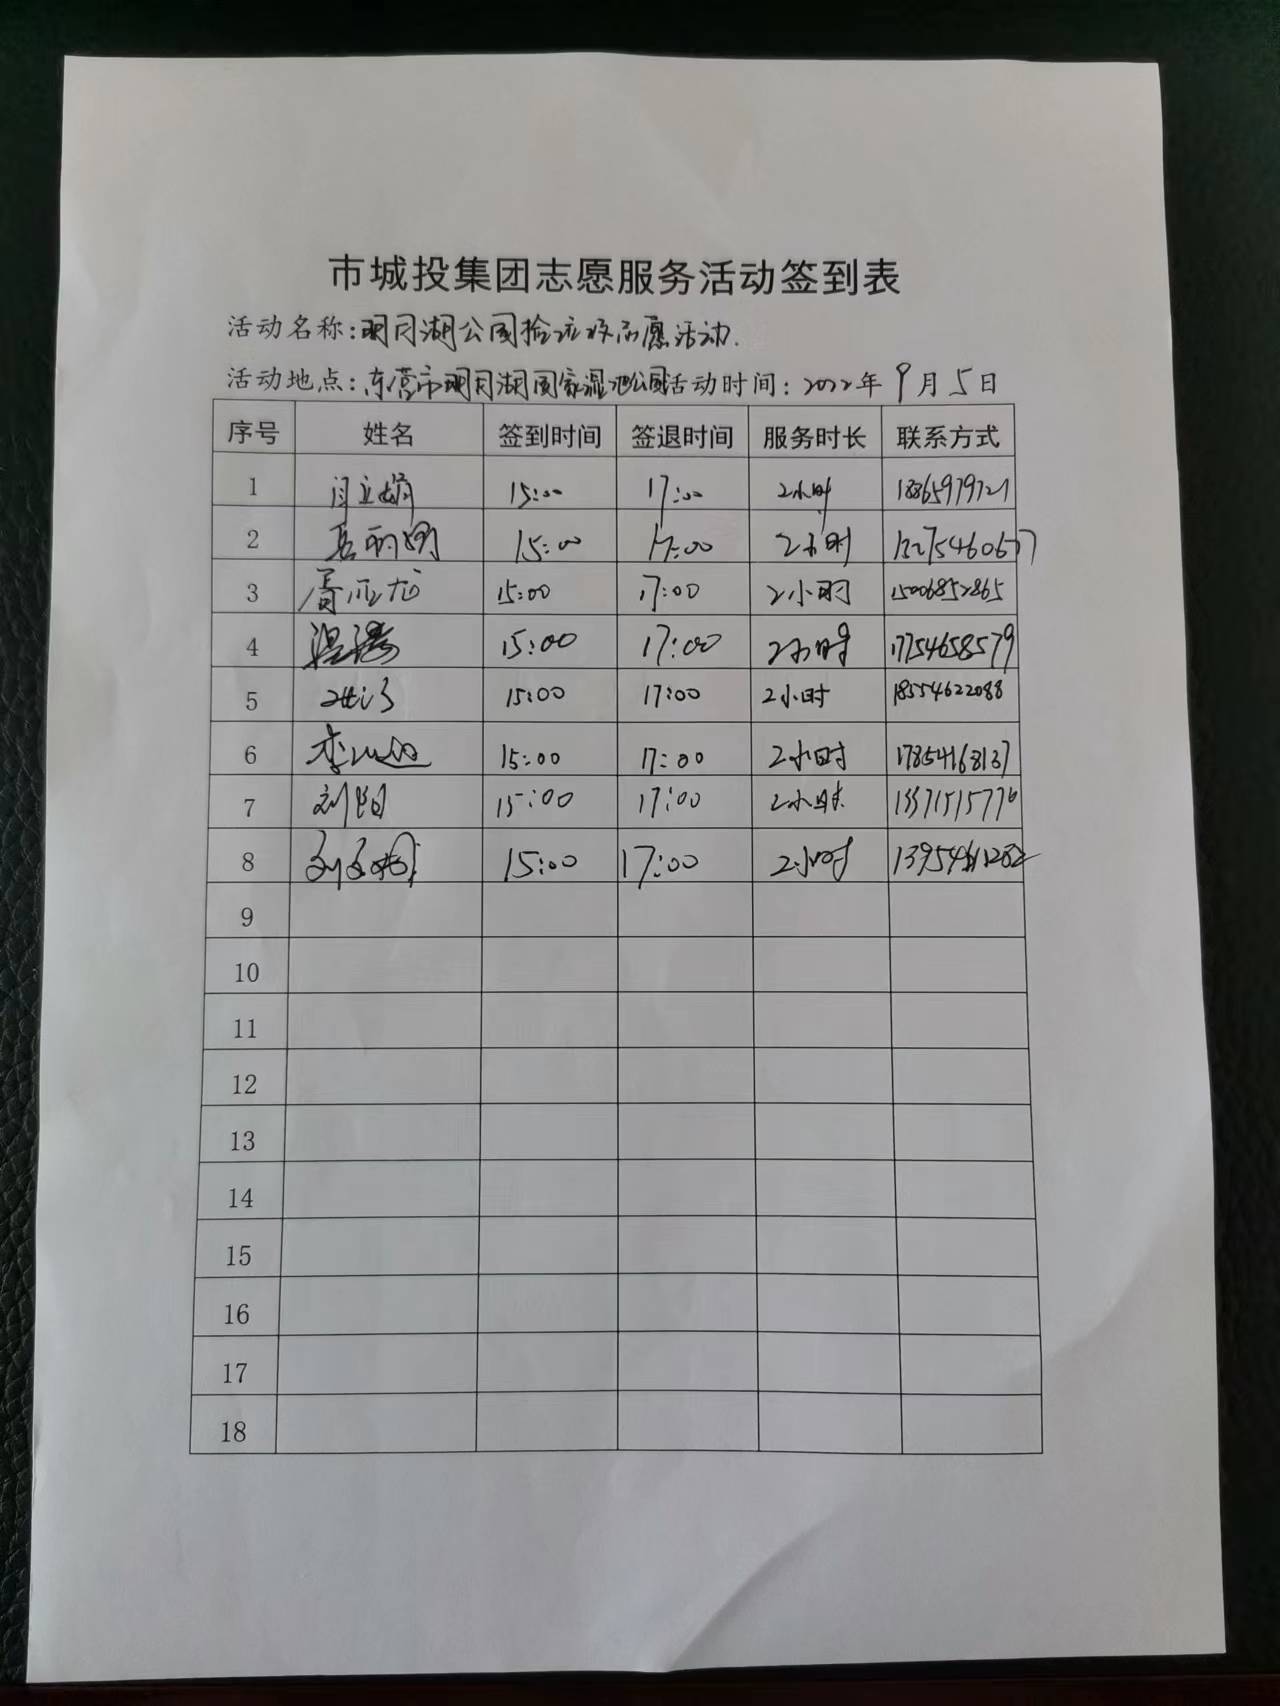 市城投集团志愿服务活动签到表
活动名称:明月湖公园捡垃圾志愿活动.
活动地点:东营市明月湖国家湿地公园活动时间:2022年9月5日
序号 姓名 签到时间 签退时间 服务时长 联系方式
1 闫立娟 15:00 17:00 2小时 18865979721
2 15:00 17:00 2小时
3 胥亚龙 15:00 17:00 2小时 15006852865
4 15:00 17:00 2小时 17754658579
5 15:00 17:00 2小时 18554622088
6 15:00 17:00 2小时 17854168137
7 刘阳 15:00 17:00 2小时
8 15:00 17:00 2小时
9
10
11
12
13
14
15
16
17
18